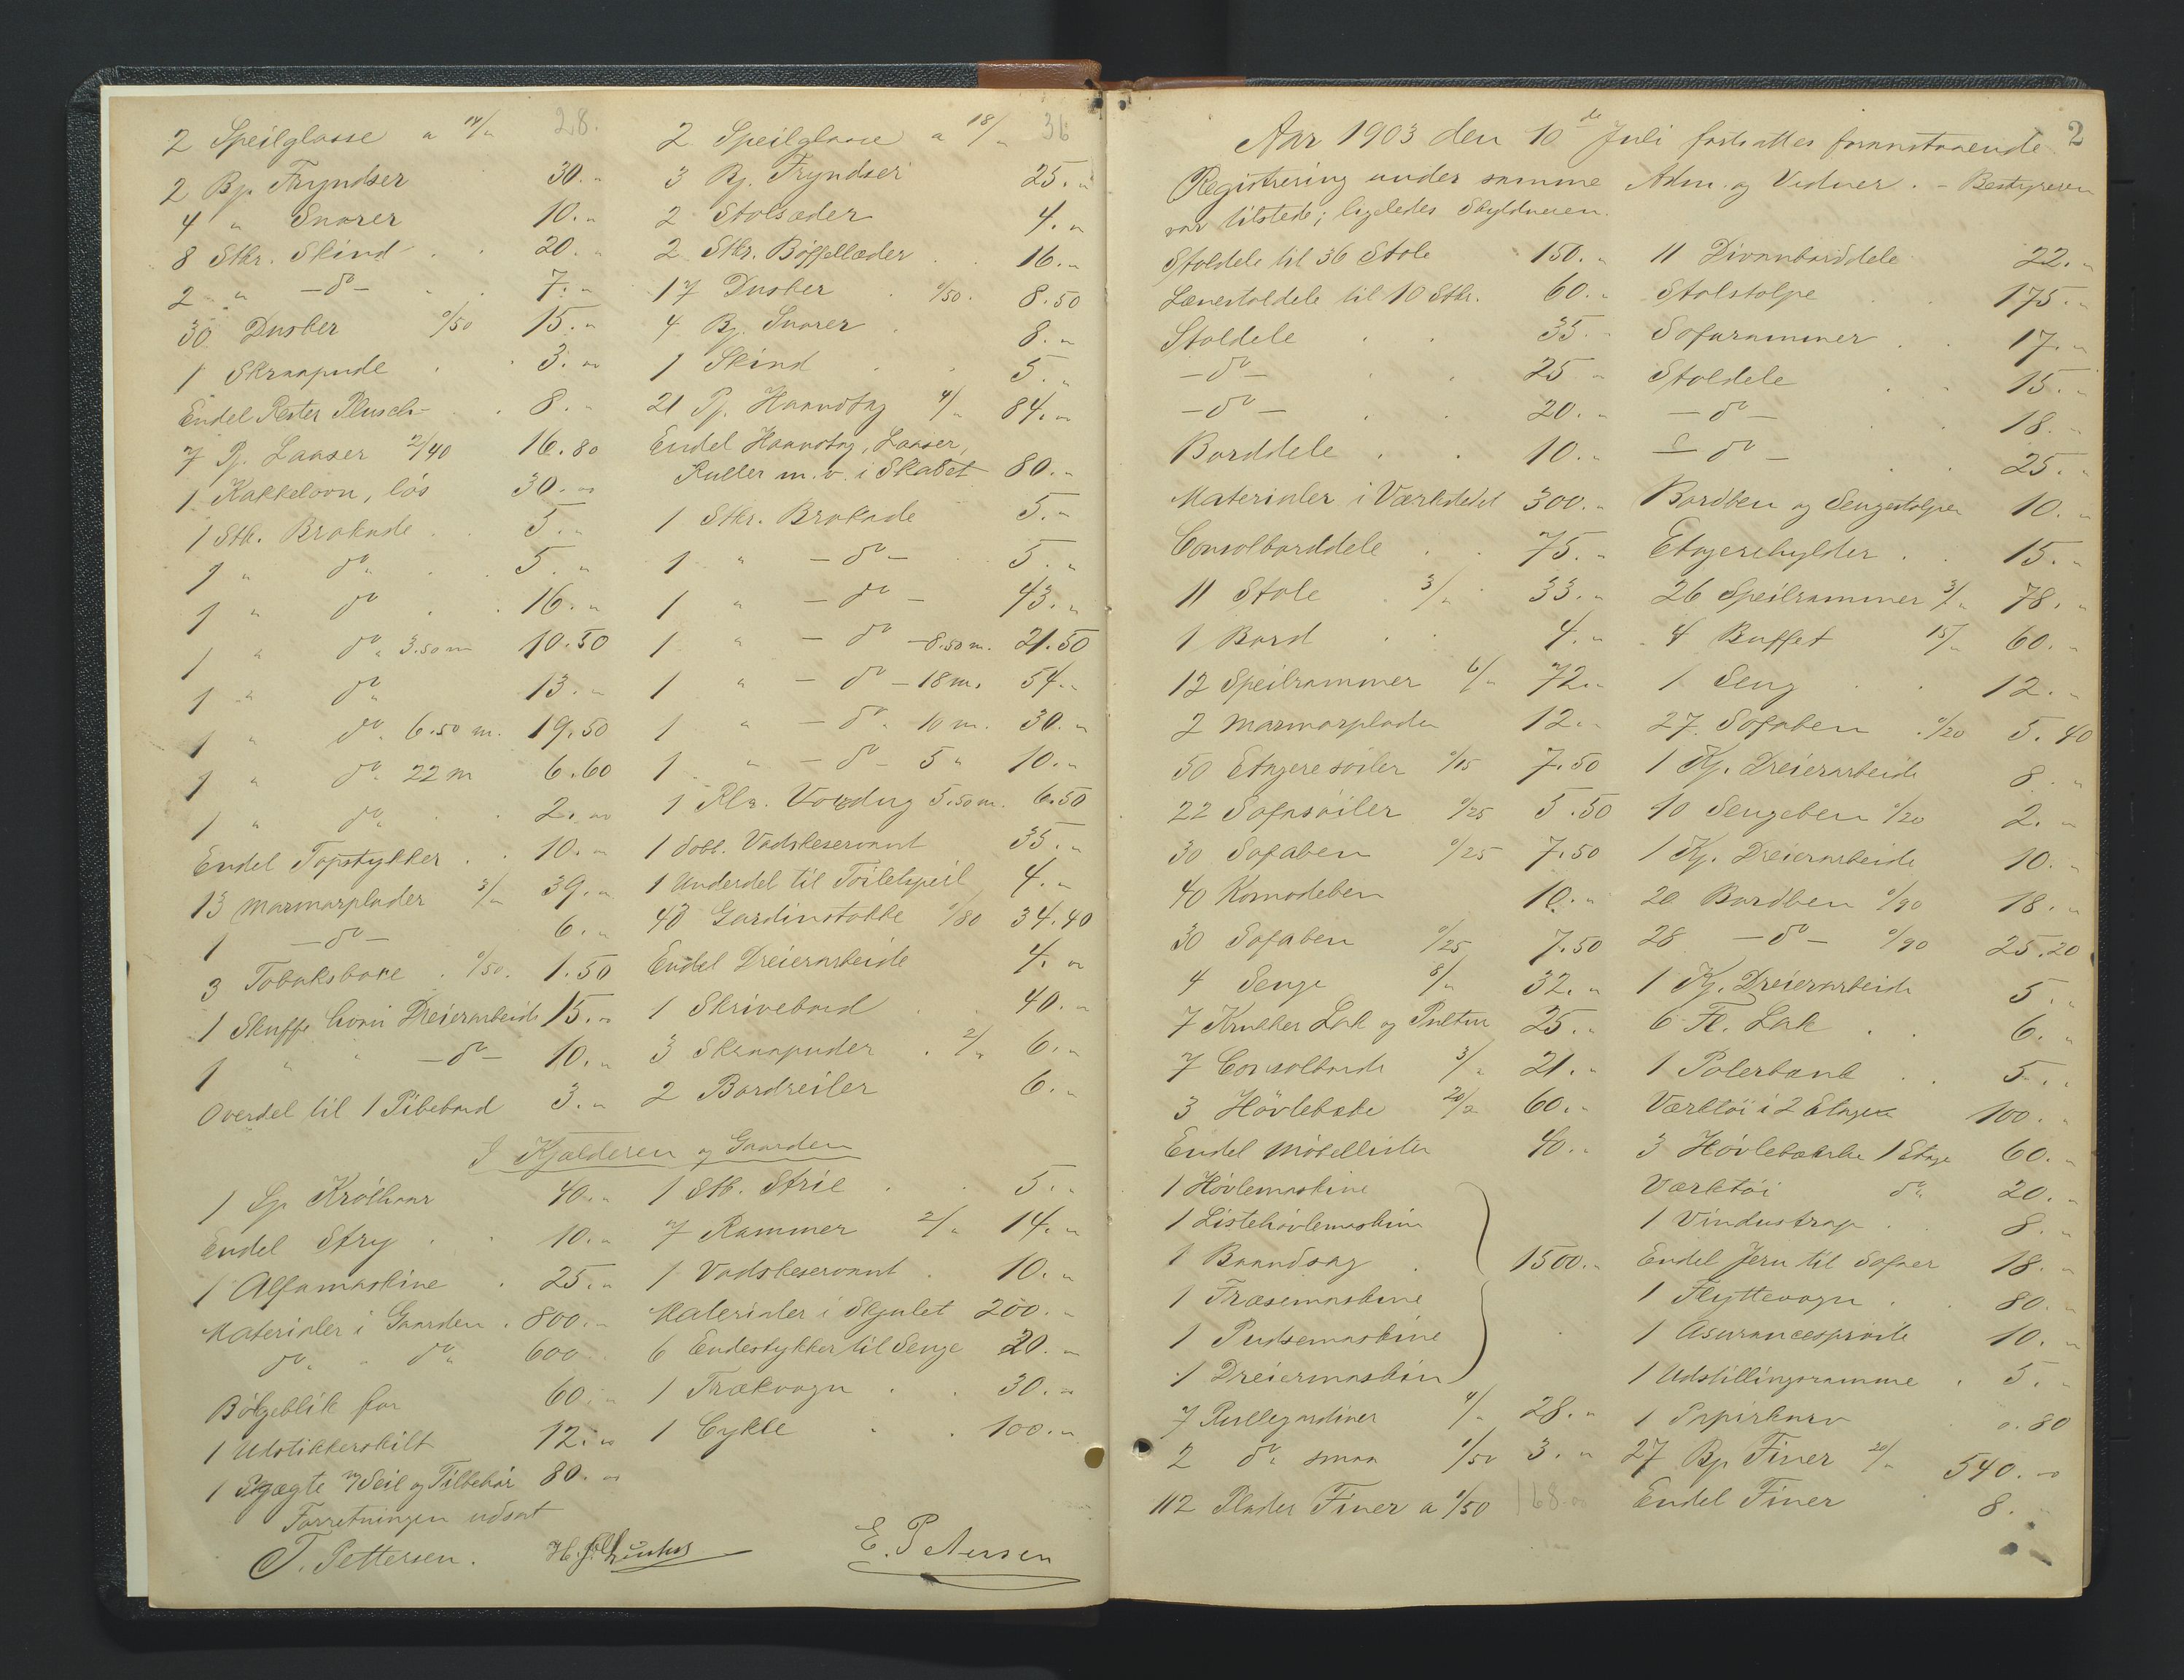 2 Speilglasse a 14/" 28.
2 Bp. Fryndser 30."
4 " Snorer 10."
8 Stkr. Skind 20."
2 " -do- 7."
30 Dusker 0/50 15."
1 Skraapude 3."
Endel Rester Plusch- 8."
7 P. Laaser 2/40 16.80
1 Kakkelovn, løs 30."
1 Stk. Brokade 5."
1 " do" 5."
1 " do 16."
1 " do" 3.50 m 10.50
1 " do" 13."
1 " do" 6.50 m. 19.50
1 " do" 22 m 6.60
1 " do" 2."
Endel Topstykker 10."
13 Marmorplader 3/" 39."
1 -do- 6."
3 Tobaksborde 0/50. 1.50
1 Skuffe hvori Dreierarbeide 15."
1 " " -do- 10."
Overdel til 1 Pibebord 3."
2 Speilglasse a 18/" 36
3 Bp. Fryndser 25."
2 Stolsæder 4."
2 Stkr. Bøffellæder 16."
17 Dusker 0/50. 8.50
4 Bp. Snorer 8."
1 Skind 5."
21 P. Haandtag 4/" 84."
Endel Haandtag, Laaser,
Ruller m.v. i Skabet 80."
1 Stkr. Brokade 5."
1 " -do- 5."
1 " -do- 43."
1 " -do- 8.50 m. 21.50
1 " -do- 18 m. 54."
1 " -do" 10 m. 30."
1 " -do- 5 " 10."
1 Rl. Voxdug 5.50 m. 6.50
1 dobl. Vadskeservant 35."
1 Underdel til Toiletspeil 4."
43 Gardinstokke 0/80 34.40
Endel Dreierarbeide 4."
1 Skrivebord 40."
3 Skraapuder 2/" 6."
2 Bordseiler 6."
I Kjælderen og Gaarden
1 Sp. Krølhaar 40."
Endel Stry 10."
1 Alfamaskine 25."
Materialer i Gaarden 800."
do" " do" 600
Bølgeblik for 60."
1 Udstikkerskilt 12."
1 Sjægte m/Seil og Tilbehør 80."
1 Stk. Strie 5."
7 Rammer 2/" 14."
1 Vadskeservant 10."
Materialer i Skjulet 200."
6 Endestykker til Senge 20."
1 Trækvogn 30."
1 Cykle 100."
Forretningen udsat
T. Pettersen. E. Petersen
2
Aar 1903 den 10de Juli fortsattes foranstaaende
Registrering under samme Adm. og Vidner. - Bestyreren
var tilstede; ligeledes Skyldneren.
Stoldele til 36 Stole 150."
Lænestoldele til 10 Stkr. 60."
Stoldele 35."
-do- 25 "
-do- 20."
Borddele 10."
Materialer i Værkstedet 300."
Consolborddele 75."
11 Stole 3/" 33."
1 Bord 4."
12 Speilrammer 6/" 72"
2 Marmorplader 12."
50 Etageresøiler 0/15 7.50
22 Sofasøiler 0/25 5.50
30 Sofaben 0/25 7.50
40 Komodeben 10."
30 Sofaben 0/25 7.50
4 Senge 8/" 32."
7 Krukker Lak og Politur 25."
7 Consolborde 3/" 21."
3 Høvlebæke 20/" 60."
Endel Møbellister 40."
1 Høvlemaskine
1 Listehøvlemaskin
1 Baandsag 1500."
1 Fræsemaskine
1 Pudsemaskine
1 Dreiermaskin
7 Rullegardiner 4/" 28."
2 do" smaa 1/50 3."
112 Plader Finer a 1/50 168."
11 Divanborddele 22."
Stolstolpe 175."
Sofarammer 17."
Stoldele 15."
-do- 18."
-do- 25."
Bordben og Sengestolper 10."
Etagerehylder 15."
26 Speilrammer 3/" 78."
4 Buffet 15/" 60."
1 Seng 12."
27 Sofaben 0/20 5.40
1 Kj. Dreierarbeide 8."
10 Sengeben 0/20 2."
1 Kj. Dreierarbeide 10."
20 Bordben 0/90 18."
28 -do- 0/90 25.20
1 Kj. Dreierarbeide 5."
6 Fl. Lak 6."
1 Polerbænk 5."
Værktøi i 2 Etage 100."
3 Høvlebænke 1 Etage 60."
Værktøi do" 20."
1 Vindustrap 8."
Endel Jern til Sofaer 18."
1 Flyttevogn 80."
1 Asurancesprøite 10."
1 Udstillingsramme 5."
1 Papirkurv 0.80
27 Bp. Finer 20/" 540."
Endel Finer 8.